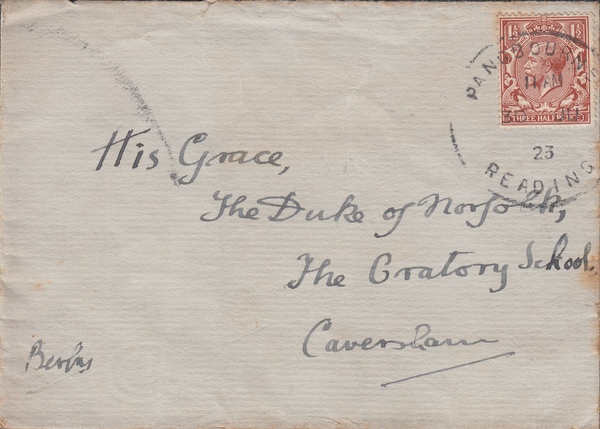 1½ 1½
PANGBOURNE
11 AM
THREE HALF PENCE
23
READING
His Grace,
The Duke of Norfolk,
The Oratory School.
Caversham
Berks